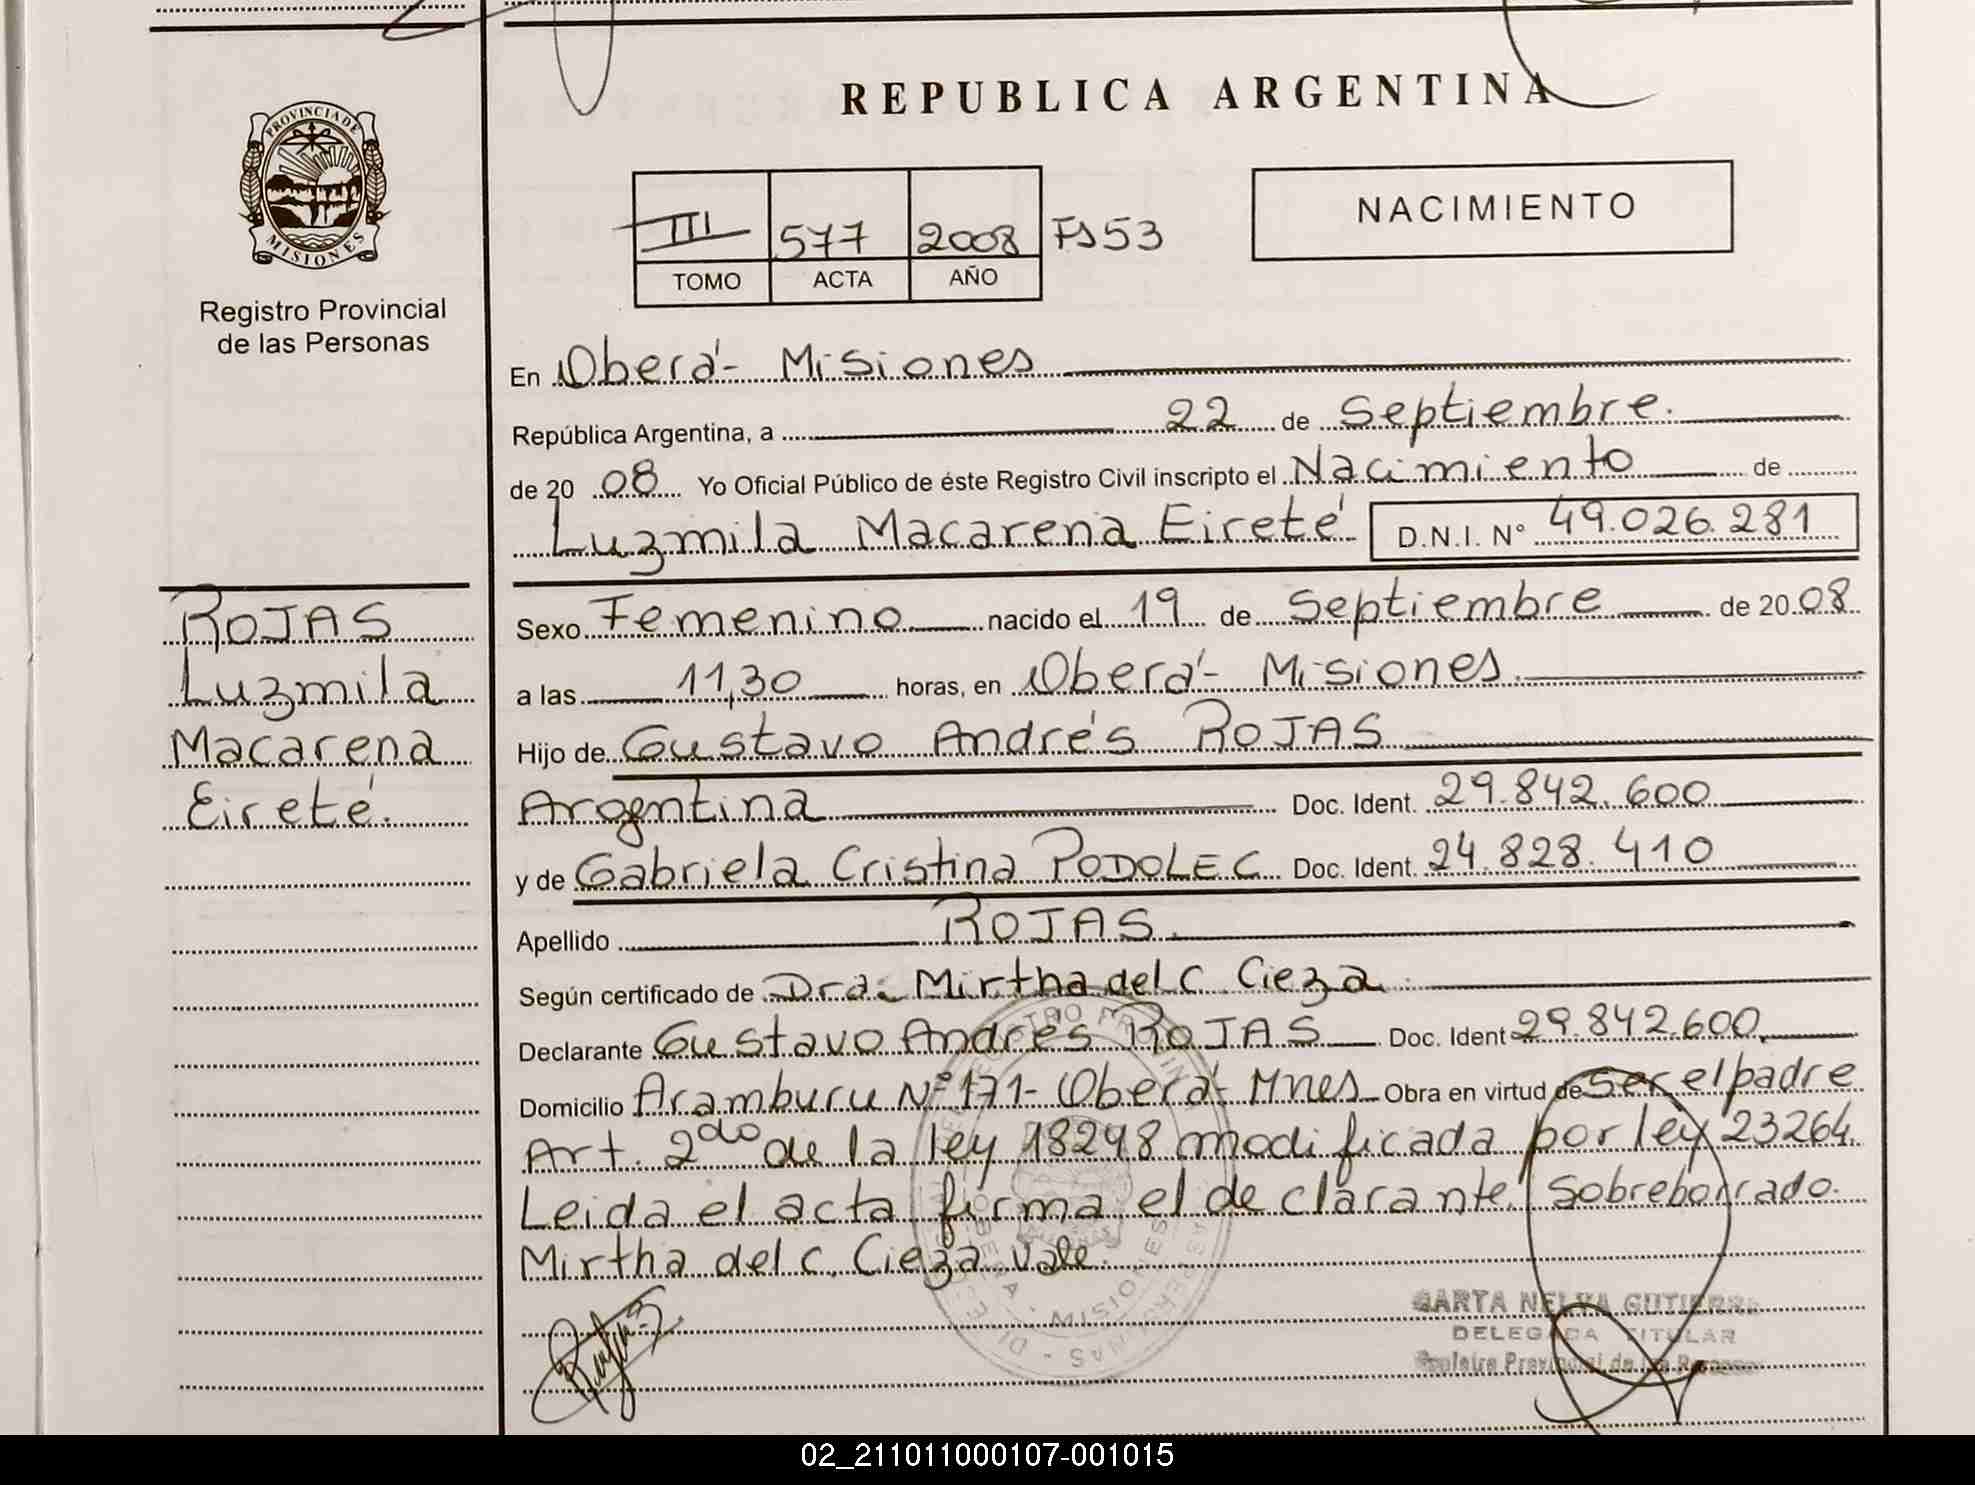 REPUBLICA ARGENTINA
PROVINCIA DE
MISIONES
Registro Provincial
de las Personas
III 577 2008 Fs 53
TOMO ACTA AÑO
NACIMIENTO
En Oberá - Misiones
República Argentina, a 22 de Septiembre.
de 20 08 Yo Oficial Público de éste Registro Civil inscripto el Nacimiento de
Luzmila Macarena Eireté D.N.I. Nº 49.026.281
ROJAS
Luzmila
Macarena
Eireté.
Sexo Femenino nacido el 19 de Septiembre de 20 08
a las 11,30 horas, en Oberá - Misiones.
Hijo de Gustavo Andrés ROJAS
Argentina Doc. Ident. 29.842.600
y de Gabriela Cristina PODOLEC Doc. Ident. 24.828.410
Apellido ROJAS.
Según certificado de Dra. Mirtha del C. Cieza.
Declarante Gustavo Andrés ROJAS Doc. Ident 29.842.600.
Domicilio Aramburu Nº 171 - Oberá - Mnes Obra en virtud de ser el padre
Art. 2do de la ley 18248 modificada por ley 23264.
Leida el acta firma el declarante. Sobreborrado.
Mirtha del C. Cieza Vale.
NELVA
DELEGADA TITULAR
Provincial de las
MISIONES
02_211011000107-001015